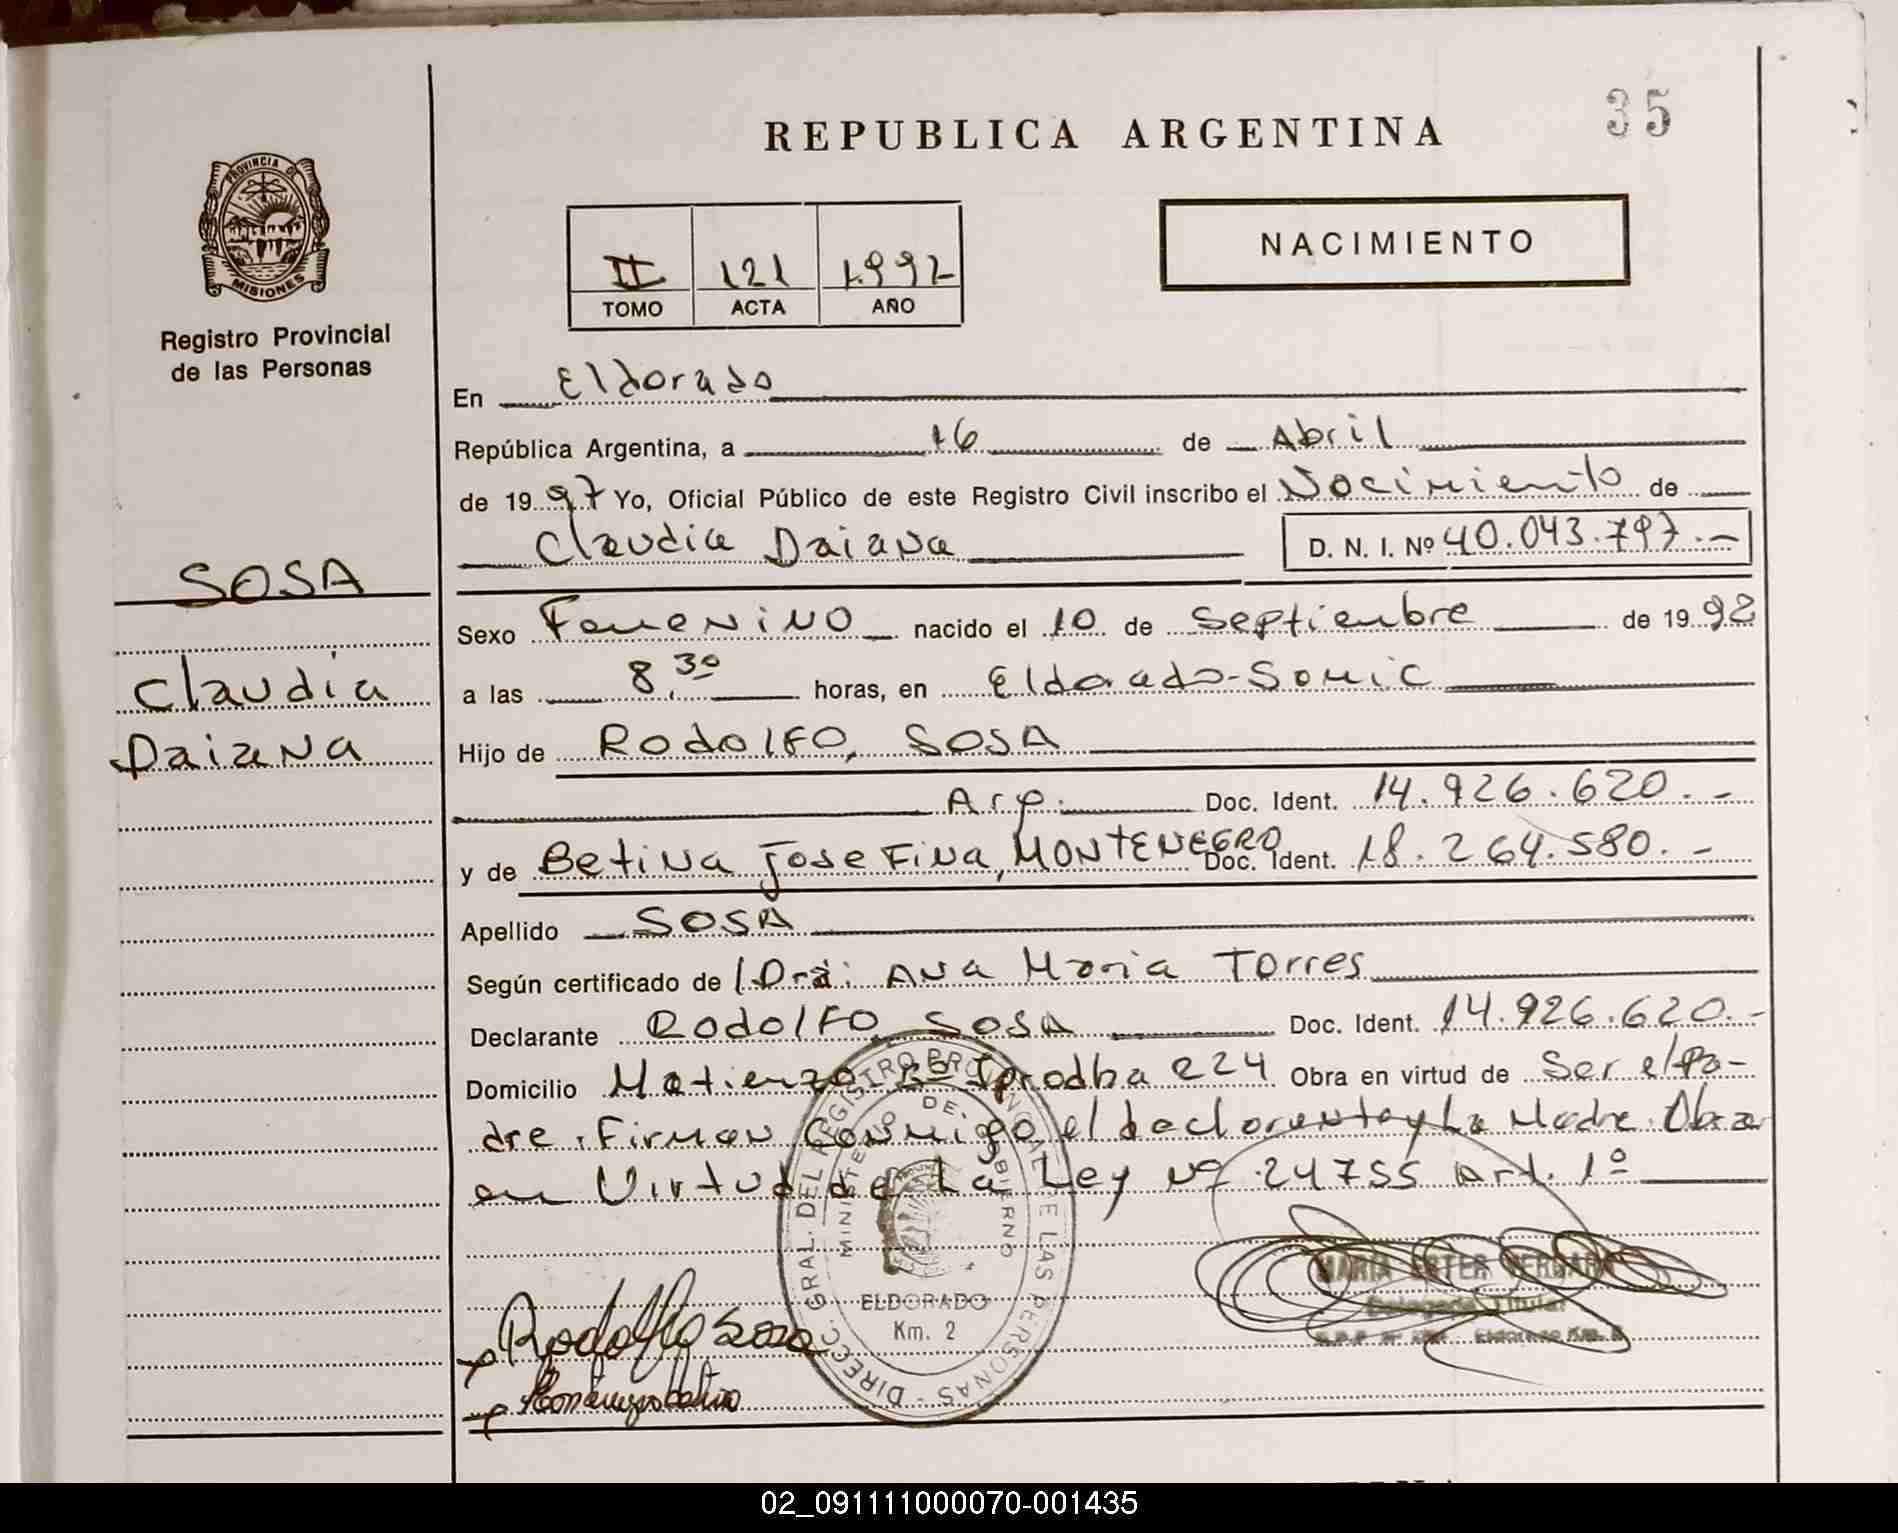 35
REPUBLICA ARGENTINA
PROVINCIA DE MISIONES
Registro Provincial
de las Personas
II 121 1.997
TOMO ACTA AÑO
NACIMIENTO
En Eldorado
República Argentina, a 16 de Abril
de 1997 Yo, Oficial Público de este Registro Civil inscribo el Nacimiento de
Claudia Daiana D. N. I. Nº 40.043.797.-
SOSA
Claudia
Daiana
Sexo Femenino nacido el 10 de Septiembre de 1992
a las 8,30 horas, en Eldorado-Somic
Hijo de Rodolfo, SOSA
Arg. Doc. Ident. 14.926.620.-
y de Betina Josefina, MONTENEGRO Doc. Ident. 18.264.580.-
Apellido SOSA
Según certificado de / Dra: Ana Maria Torres
Declarante Rodolfo SOSA Doc. Ident. 14.926.620.-
Domicilio Matienzo Bº Iprodha 224 Obra en virtud de Ser el Pa-
dre. Firman Conmigo el declarante y La Madre. Obra
en Virtud de La Ley Nº 24755 Art. 1º
DIRECC. GRAL. DEL REGISTRO PROVINCIAL DE LAS PERSONAS -
MINISTERIO DE GOBIERNO
ELDORADO
Km. 2
MARIA ESTER VERGARA
Delegada Titular
Eldorado Km. 2
Rodolfo Sosa
02_091111000070-001435